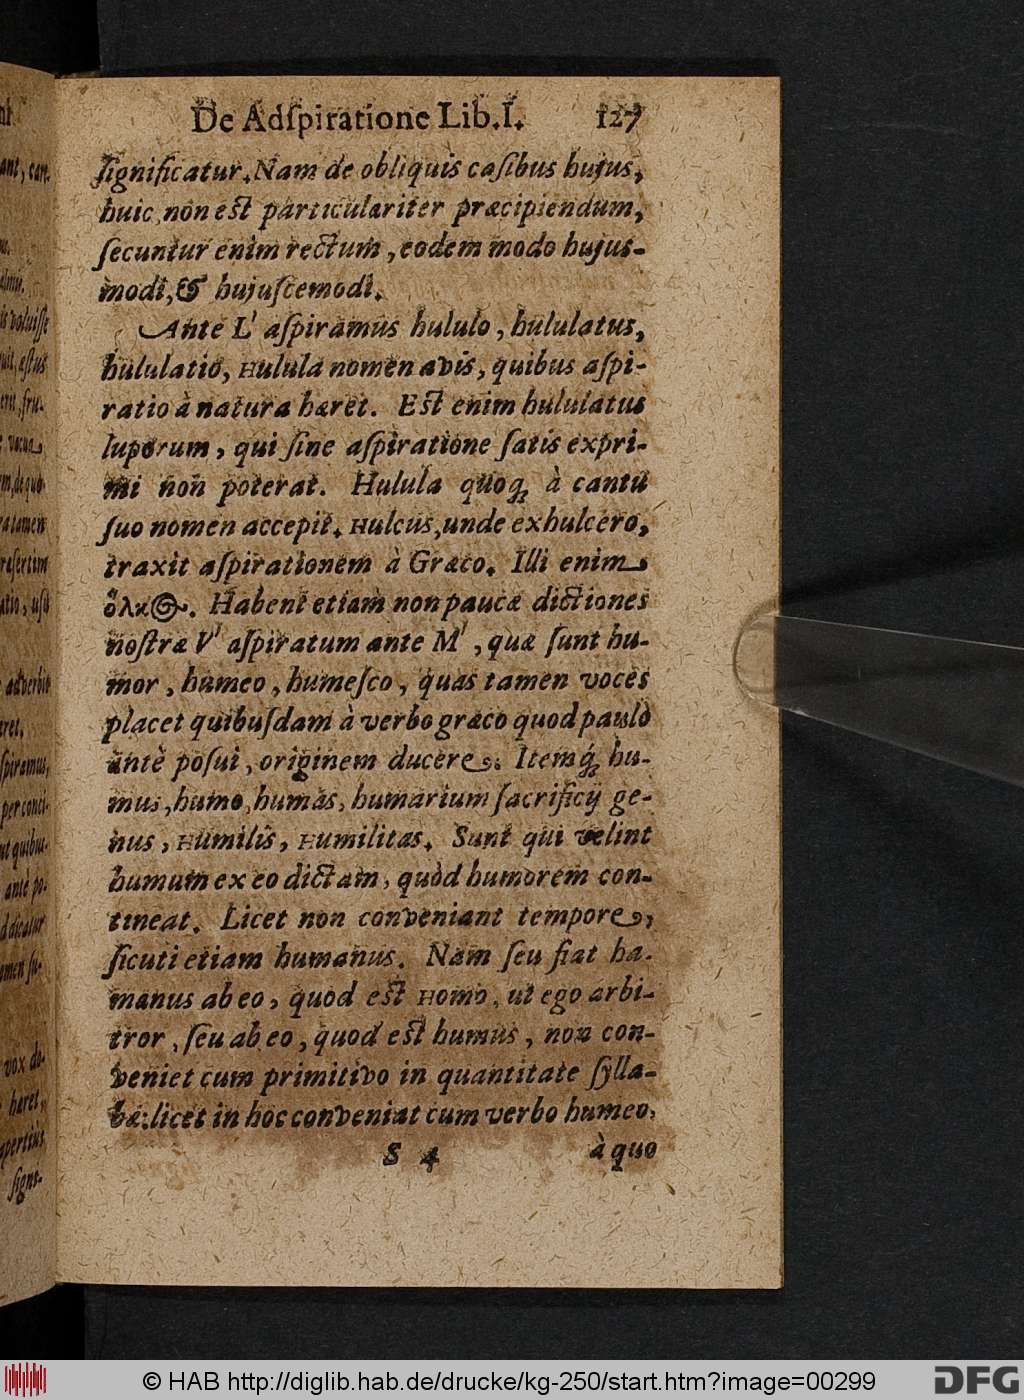 De Adſpiratione Lib. I. 127
ſignificatur. Nam de obliquis caſibus hujus,
huic, non est particulariter præcipiendum,
ſecuntur enim rectum, eodem modo hujus-
modi, & hujuſcemodi.
Ante L' aſpiramus hululo, hululatus,
hululatio, Hulula nomen avis, quibus aſpi-
ratio à natura hæret. Est enim hululatus
luporum, qui ſine aſpiratione ſatis expri-
mi non poterat. Hulula quoq; à cantu
ſuo nomen accepit. Hulcus, unde exhulcero,
traxit aſpirationem à Græco. Illi enim
ὅλκος. Habent etiam non paucæ dictiones
noſtræ V' aſpiratum ante M', quæ ſunt hu-
mor, humeo, humeſco, quas tamen voces
placet quibuſdam à verbo græco quod paulò
antè poſui, originem ducere. Itemq́; hu-
mus, humo, humas, humarium ſacrificij ge-
nus, Humilis, Humilitas. Sunt qui velint
humum ex eo dictam, quòd humorem con-
tineat. Licet non conveniant tempore,
ſicuti etiam humanus. Nam ſeu fiat hu-
manus ab eo, quod est Homo, ut ego arbi-
tror, ſeu ab eo, quod est humus, non con-
veniet cum primitivo in quantitate ſylla-
bæ: licet in hoc conveniat cum verbo humeo,
S 4 à quo
© HAB http://diglib.hab.de/drucke/kg-250/start.htm?image=00299
DFG